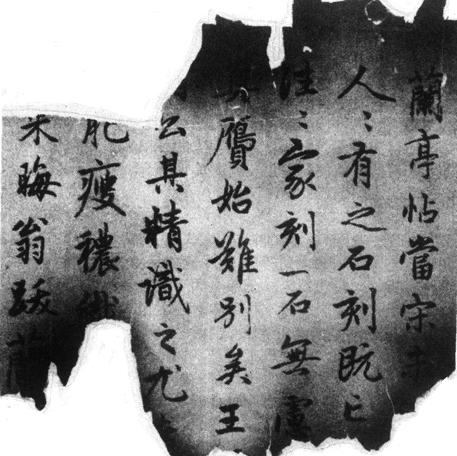 蘭亭帖當宋未
人〻有之石刻既亡
往〻家刻一石無慮
贗始難別矣王
公其精識之尤
肥瘦穠纖
朱晦翁跋蘭